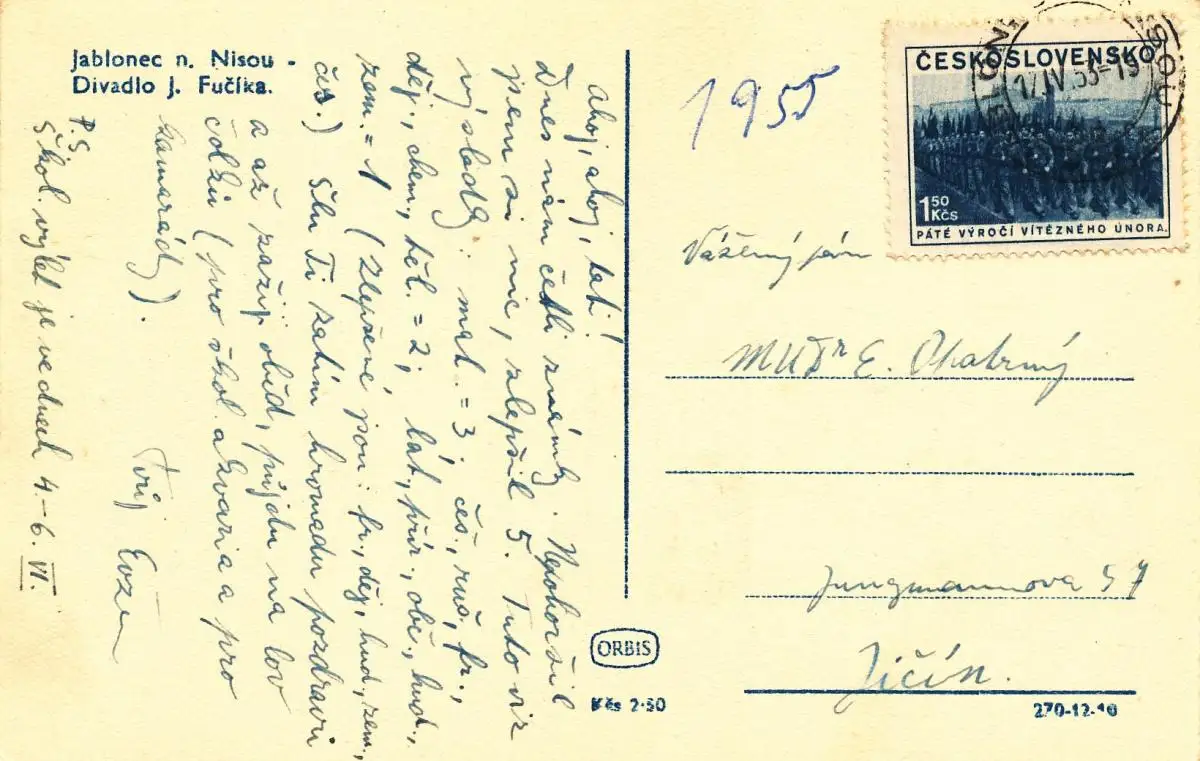 Jablonec n. Nisou -
Divadlo J. Fučíka.
Ahoj, ahoj, tati!
Dnes nám četli známky. Nepohoršil
jsem si nic, zlepšil 5. Tuto viz
výsledky: mat. = 3; čes., ruš., fr.,
děj., chem., těl. = 2; lat., přír., obč., hud.,
zem. = 1 (zlepšené jsou: fr., děj., hud., zem.,
čes.) Šlu Ti zatím hromadu pozdravů
a až zažiji oběd, půjdu na lov
čolků (pro škol. akvaria a pro
kamarády).
Tvůj Evžen
P.S.
Škol. výlet je ve dnech 4-6. VI.
1955
ČESKOSLOVENSKO
17.IV.53-19
1 50
Kčs
PÁTÉ VÝROČÍ VÍTĚZNÉHO ÚNORA.
Vážený pán
MUDr E. Pokorný
Jungmannova 57
Jičín.
ORBIS
Kčs 2·50
270-12-10